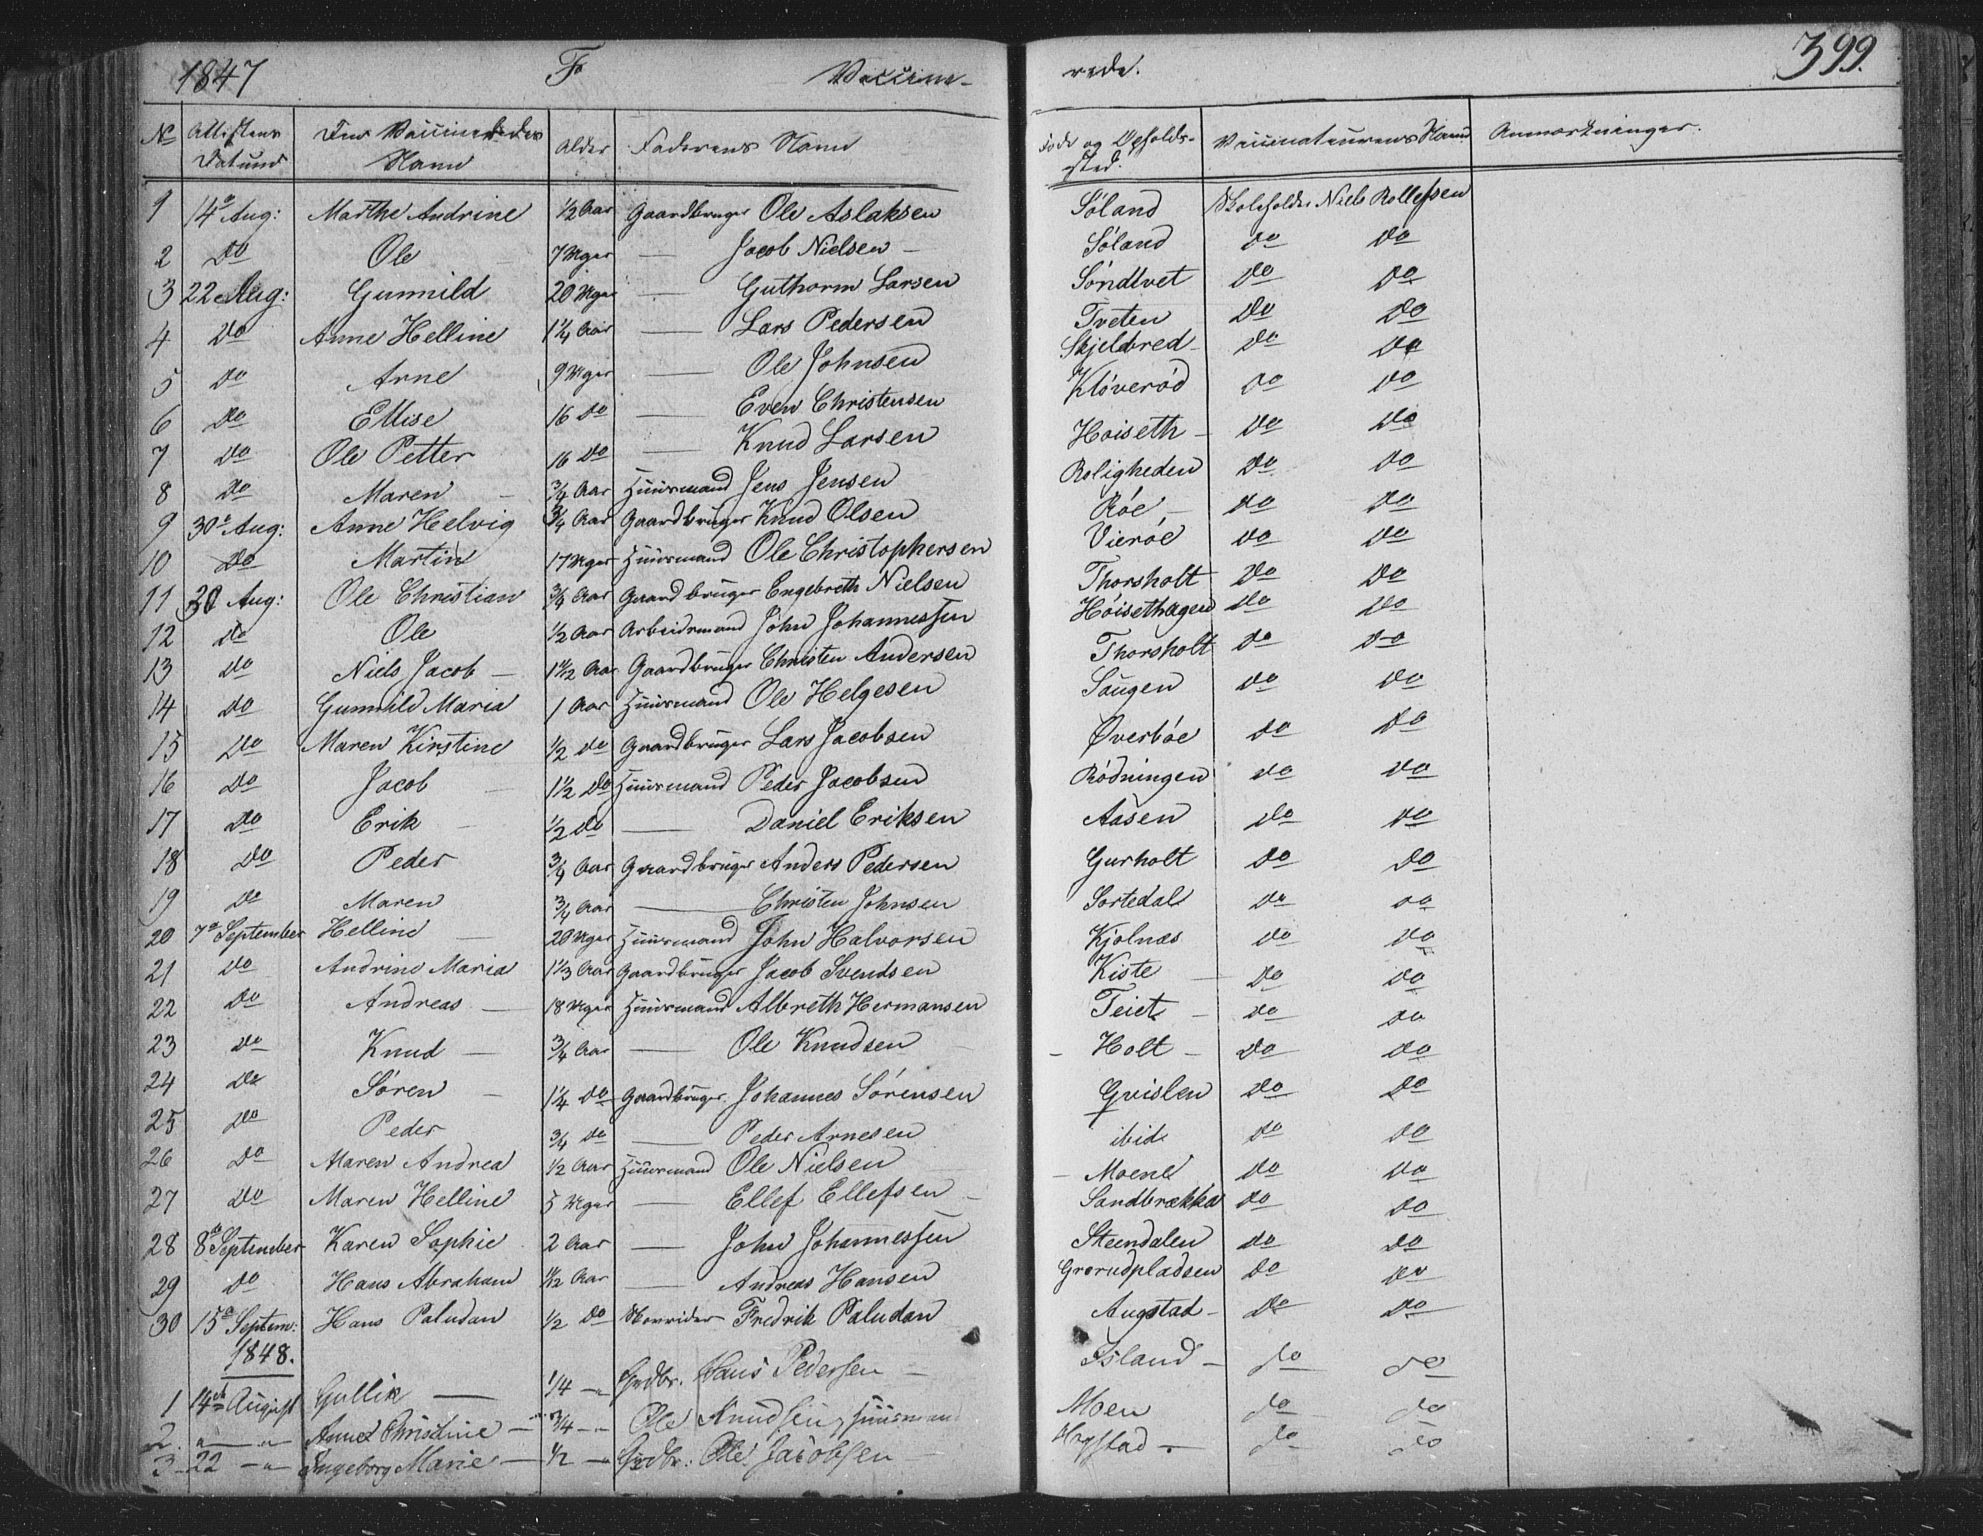 1847 F Vaccine- rede. 399.
No Attestens Datum Den Vaccineredes Navn Alder Faderens Navn Føde og Opholds-sted. Vaccinateurens Navn Anmærkninger.
1 14de Aug: Marthe Andrine 1/2 Aar Gaardbruger Ole Aslaksen Søland Skoleholder Niels Rollefsen
2 Do Ole 7 Uger — Jacob Nielsen Søland Do Do
3 22 Aug: Gunnild 20 Uger — Guthorm Larsen Søndtvet Do Do
4 Do Anne Helline 1 1/4 Aar — Lars Pedersen Tveten Do Do
5 Do Arne 9 Uger — Ole Johnsen Skjelbred Do Do
6 Do Ellise 16 Do — Even Christensen Kløverød Do Do
7 Do Ole Petter 16 Do — Knud Larsen Høiseth Do Do
8 Do Maren 3/4 Aar Huusmand Jens Jensen Roligheden Do Do
9 30te Aug: Anne Helvig 3/4 Aar Gaardbruger Knud Olsen Røe Do Do
10 Do Martin 17 Uger Huusmand Ole Christophersen Vierøe Do Do
11 30 Aug: Ole Christian 3/4 Aar Gaardbruger Engebreth Nielsen Thorsholt Do Do
12 Do Ole 1/2 Aar Arbeidsmand John Johannessen Høisethagen Do Do
13 Do Niels Jacob 1 1/2 Aar Gaardbruger Christen Andersen Thorsholt Do Do
14 Do Gunnild Maria 1 Aar Huusmand Ole Helgesen Saugen Do Do
15 Do Maren Kirstine 1/2 Do Gaardbruger Lars Jacobsen Øverbøe Do Do
16 Do Jacob 1 1/2 Do Huusmand Peder Jacobsen Rødningen Do Do
17 Do Erik 1/2 Do — Daniel Eriksen Aasen Do Do
18 Do Peder 3/4 Aar Gaardbruger Anders Pedersen Gurholt Do Do
19 Do Maren 3/4 Aar — Christen Johnsen Sortedal Do Do
20 7de September Helline 20 Uger Huusmand John Halvorsen Kjølnæs Do Do
21 Do Andrine Maria 1 1/3 Aar Gaardbruger Jacob Svendsen Kiste Do Do
22 Do Andreas 18 Uger Huusmand Albreth Hermansen Teiet Do Do
23 Do Knud 3/4 Aar — Ole Knudsen Holt Do Do
24 Do Søren 1 1/4 Do Gaardbruger Johannes Sørensen Gvislen Do Do
25 Do Peder 3/4 Do — Peder Arnesen ibid Do Do
26 Do Maren Andrea 1/2 Aar Huusmand Ole Nielsen Moene Do Do
27 Do Maren Helline 5 Uger — Ellef Ellefsen Sandbrækka Do Do
28 8de September Karen Sophie 2 Aar — John Johannessen Steendalen Do Do
29 Do Hans Abraham Aar — Andreas Hansen Grorudpladsen Do Do
30 15de Septem: Hans Paludan 1/2 Do Skovrider Fredrik Paludan Augstad Do Do
1848.
1 14de August Gullik 1/4 — Grdbr. Hans Pedersen Island Do Do
2 — Anne Christine 3/4 — Ole Knudsen, Huusmand Moen Do Do
3 22 — Ingeborg Marie 1/2 — Grdbr. Ole Jacobsen Do Do